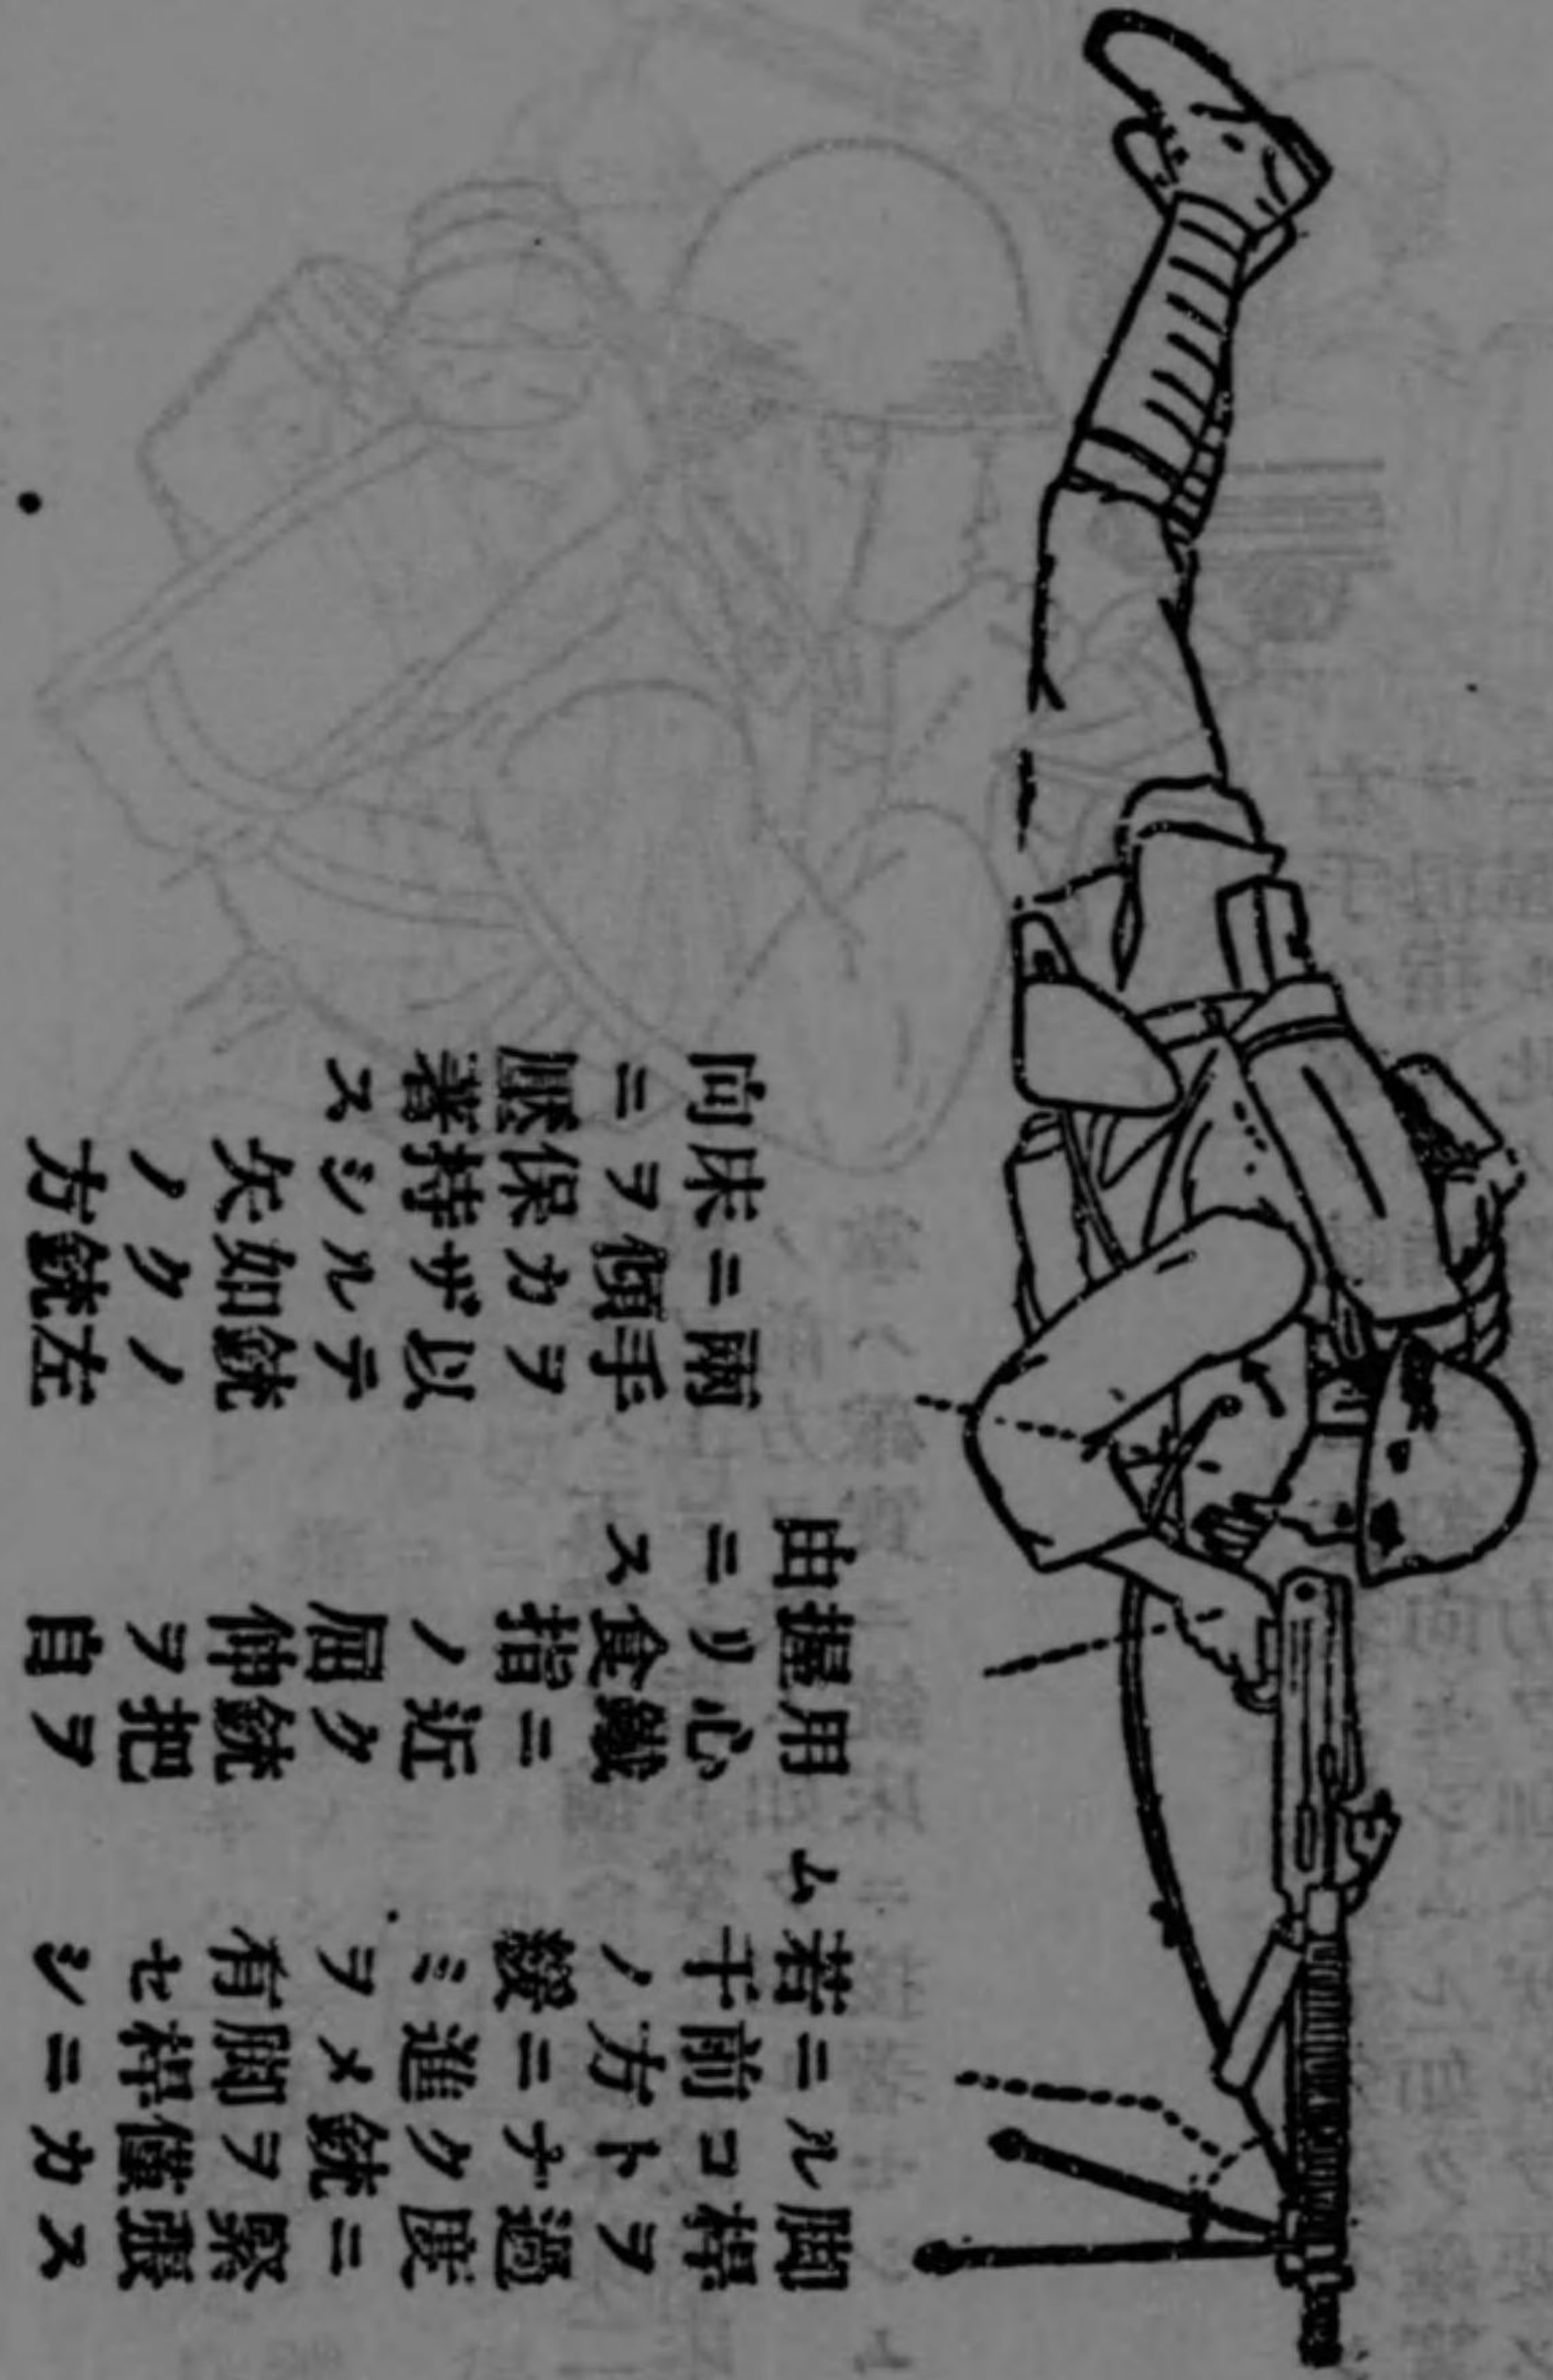 脚桿ヲ過度ニ緊張ス
ルコトナク銃ヲ僅カ
ニ前方ニ進メ脚桿ニ
若干ノ發ミヲ有セシ
ム
用心鐵ニ近ク銃把ヲ
握リ食指ノ屈伸ヲ自
由ニス
兩手ヲ以テ銃ノ左
ニ傾カザル如ク銃
床ヲ保持シ矢ノ方
向ニ壓著ス